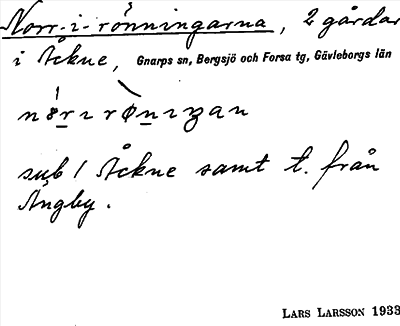 Norr-i-rönningarna, 2 gårdar
i Åckne, Gnarps sn, Bergsjö och Forsa tg, Gävleborgs län
sub 1 Åckne samt t. från
Ängby.
LARS LARSSON 1933